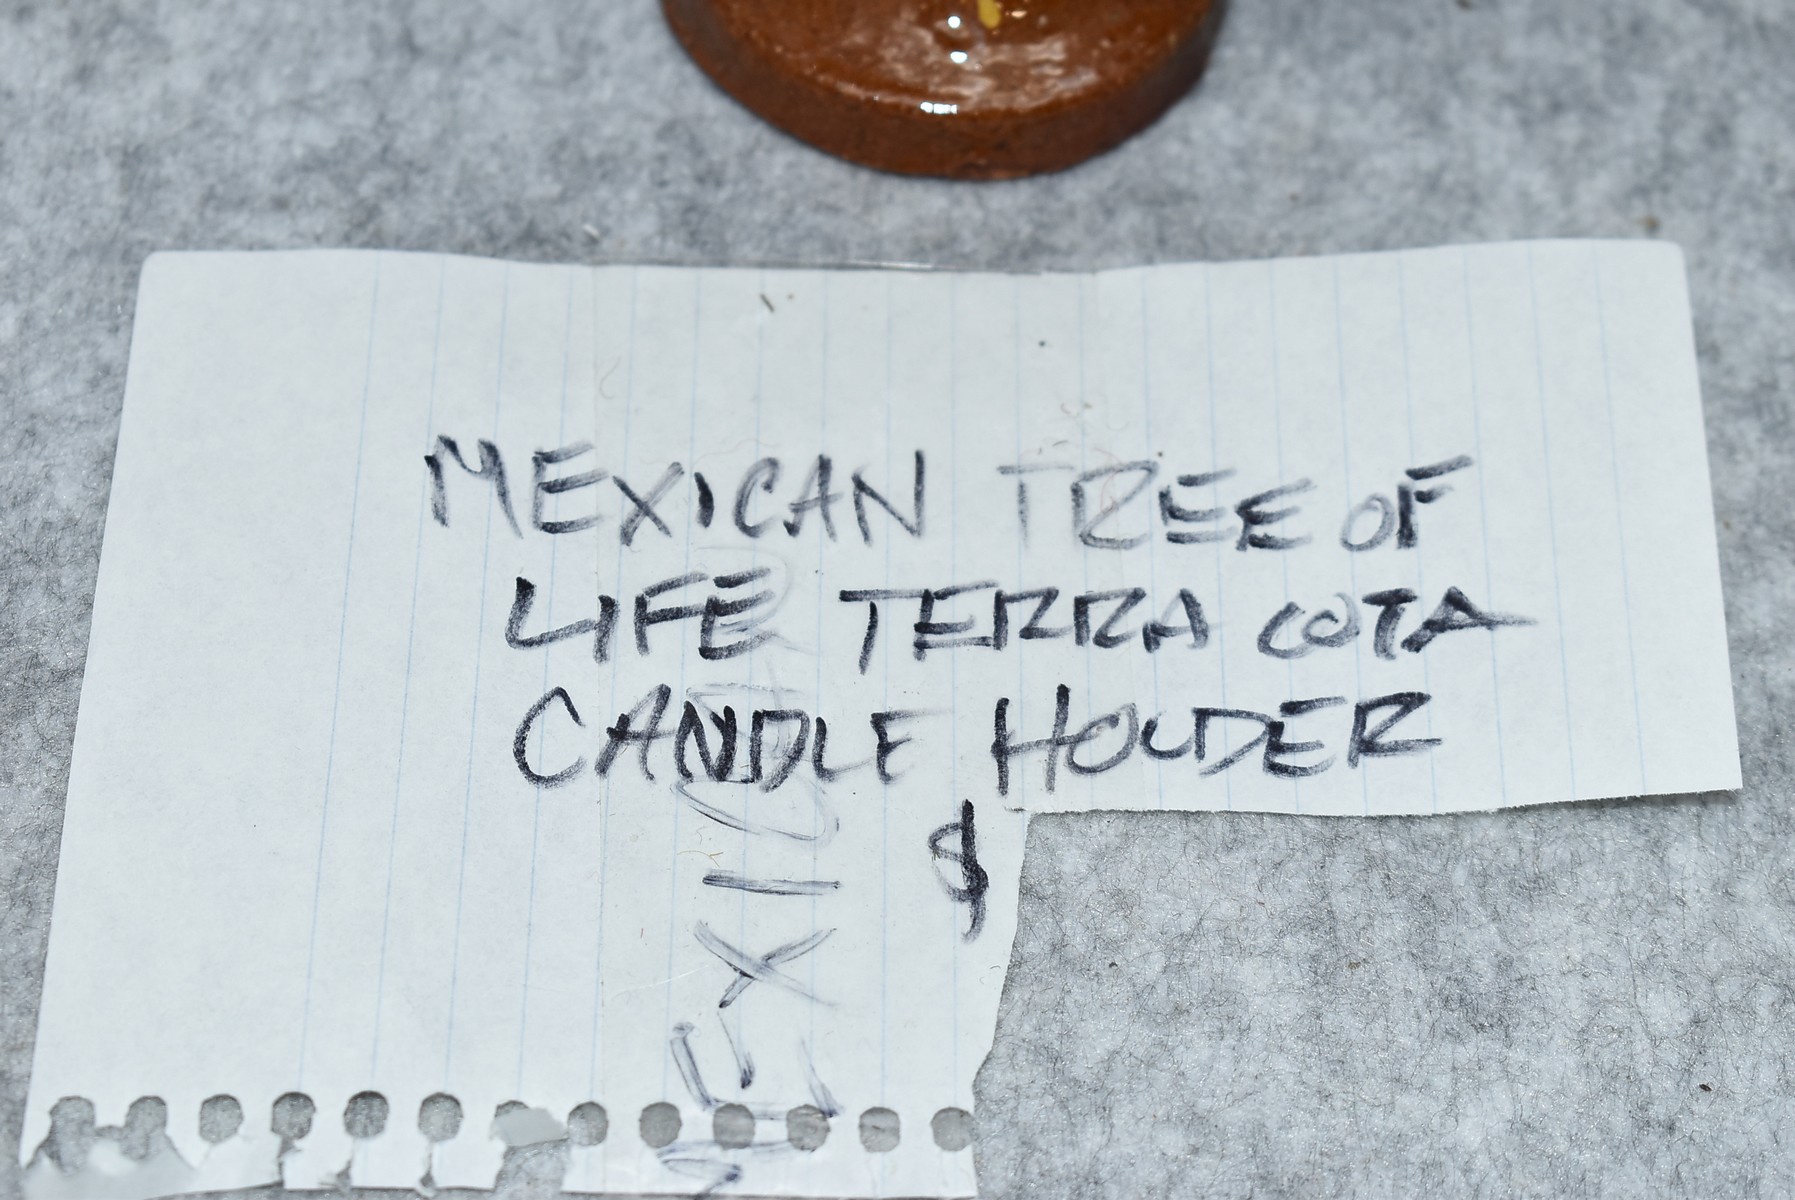 MEXICAN TREE OF
LIFE TERRA COTA
CANDLE HOLDER
$